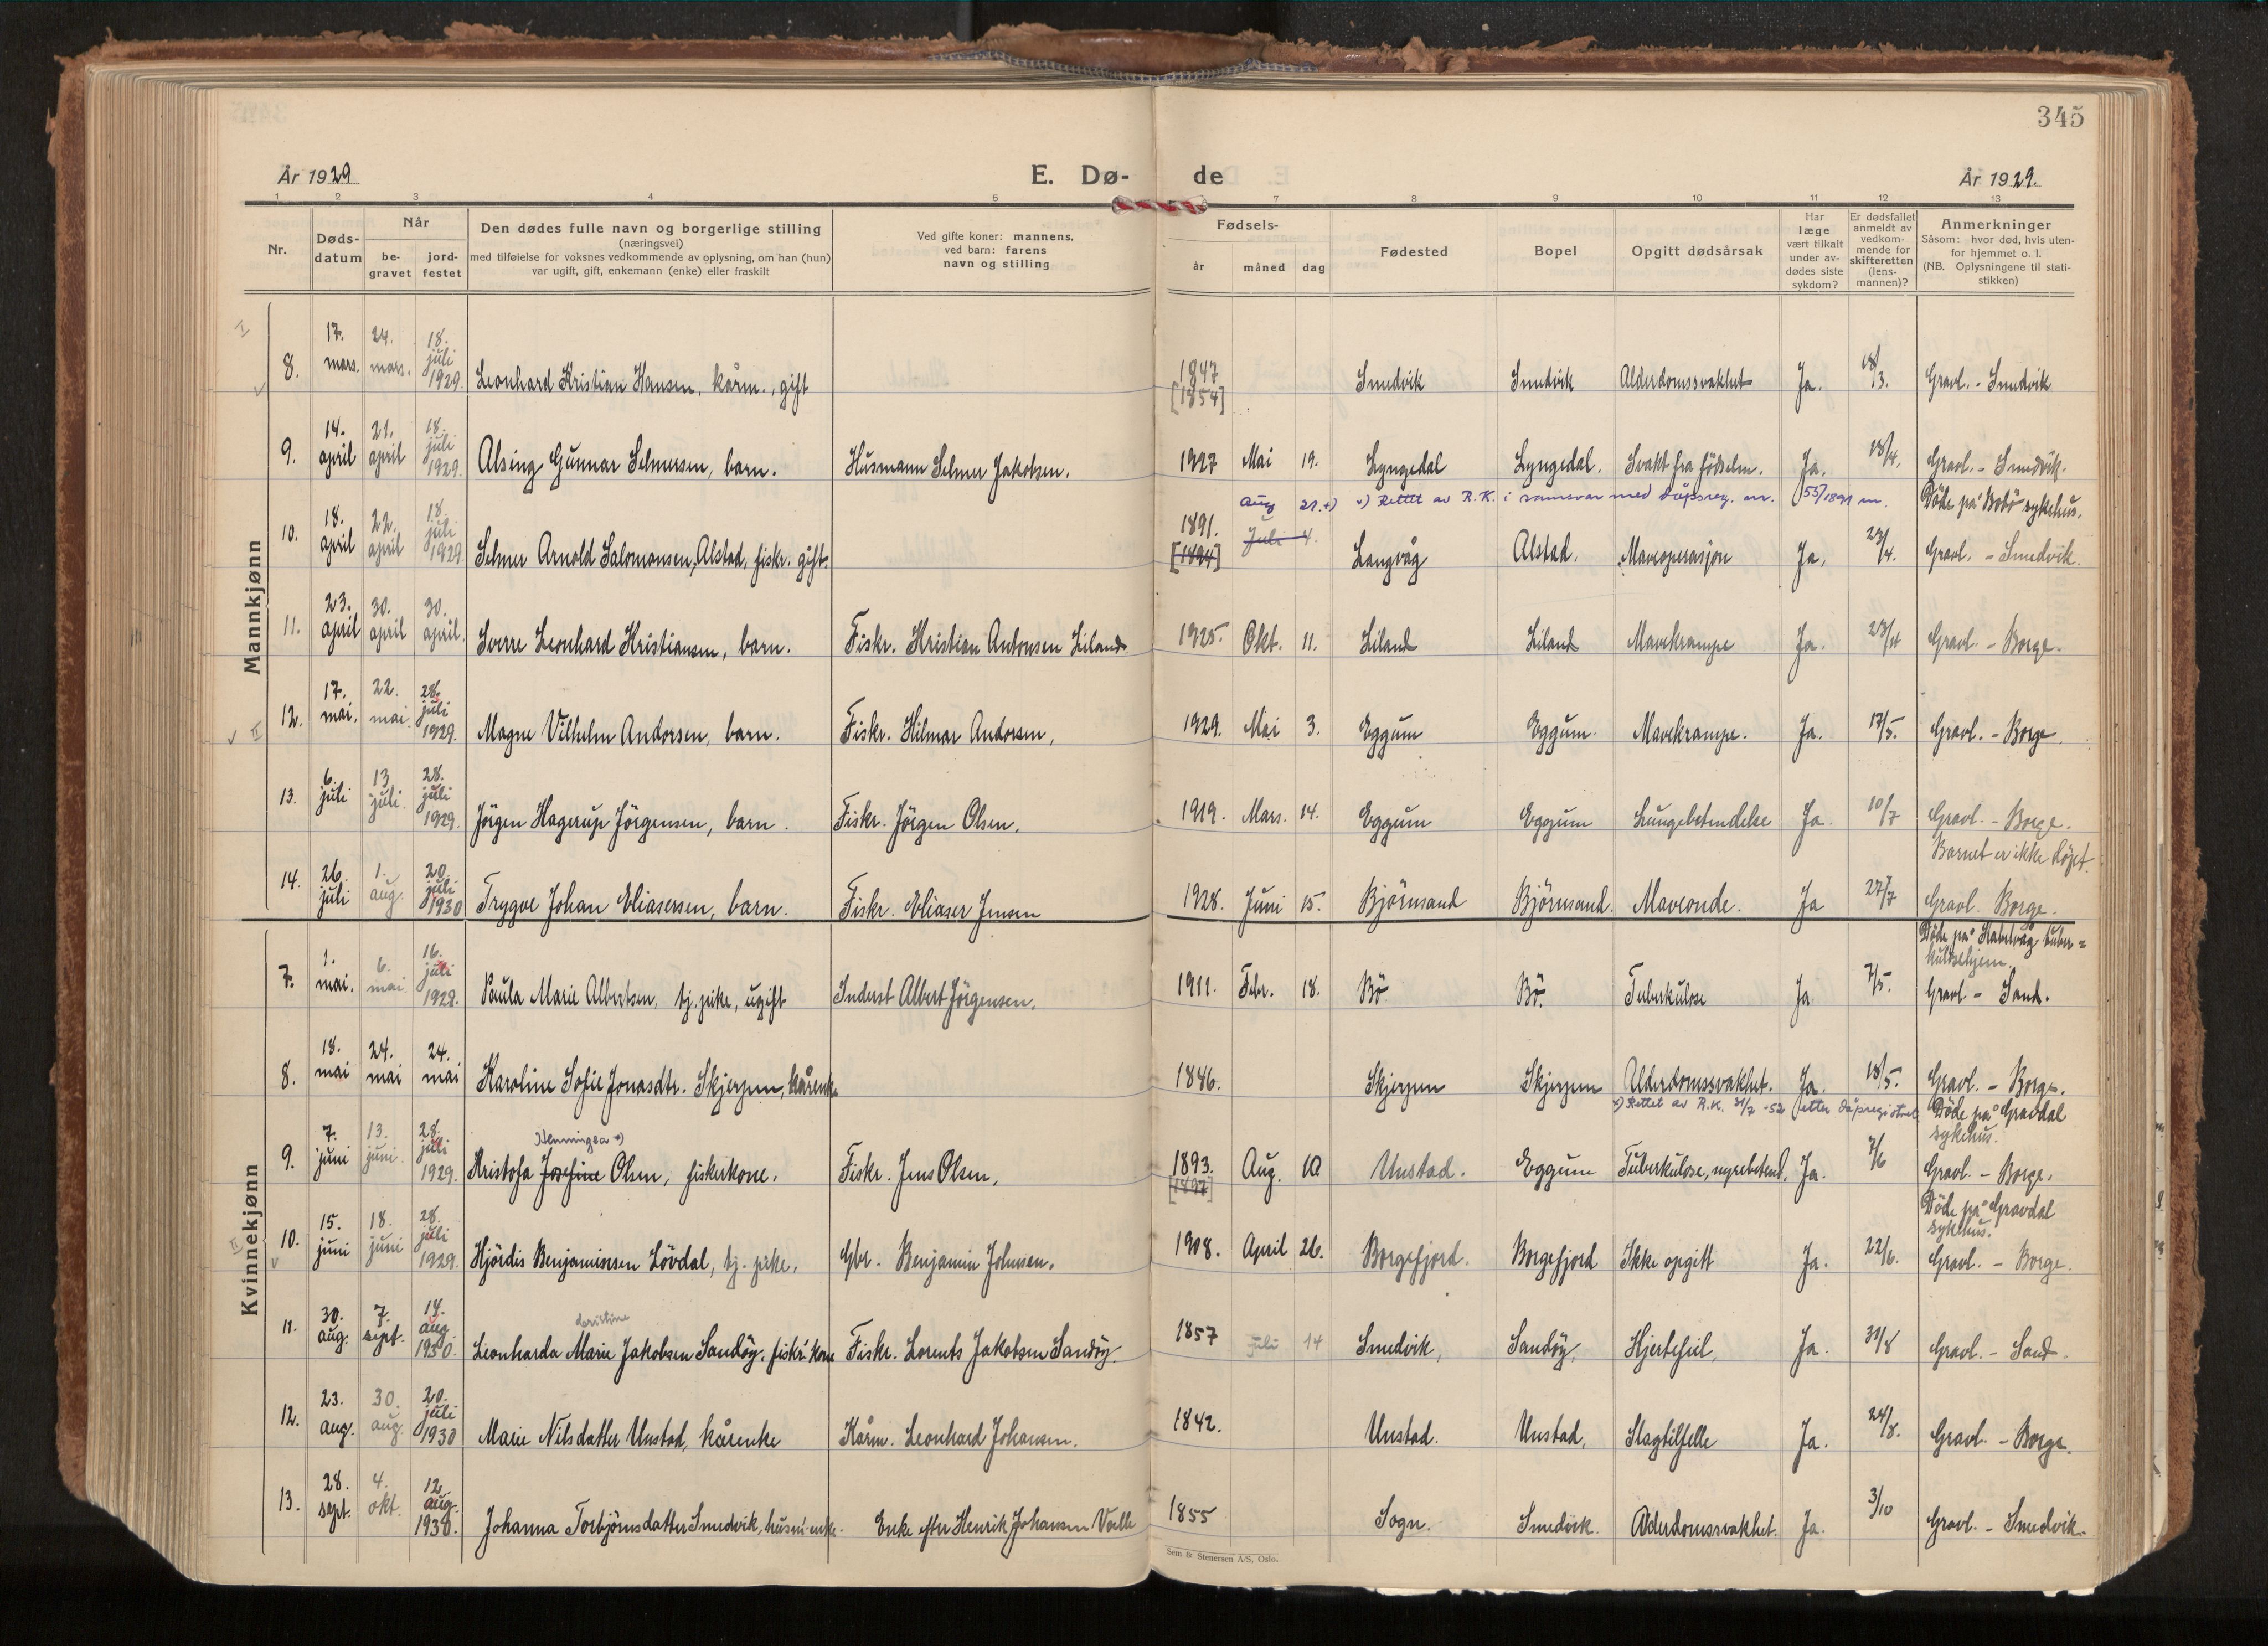 345
År 1929
E. Dø- de
År 1929.
1 2 3 4 5 7 8 9 10 11 12 13
Nr.
Døds-
datum
Når
be-
gravet
jord-
festet
Den dødes fulle navn og borgerlige stilling
(næringsvei)
med tilføielse for voksnes vedkommende av oplysning, om han (hun)
var ugift, gift, enkemann (enke) eller fraskilt
Ved gifte koner: mannens,
ved barn: farens
navn og stilling
Fødsels-
år måned dag
Fødested
Bopel
Opgitt dødsårsak
Har
læge
vært tilkalt
under av-
dødes siste
sykdom?
Er dødsfallet
anmeldt av
vedkom-
mende for
skifteretten
(lens-
mannen)?
Anmerkninger
Såsom: hvor død, hvis uten-
for hjemmet o. l.
(NB. Oplysningene til stati-
stikken)
Mannkjønn
8. 17. mars. 24. mars. 18. juli 1929. Leonhard Kristian Hansen, kårm., gift 1847 [1854] Smedvik Smedvik Alderdomssvakhet Ja. 18/3. Gravl. - Smedvik
9. 14. april 21. april 18. juli 1929. Alsing Gunnar Selmersen, barn. Husmann Selmer Jakobsen. 1927 Mai 19. Lyngedal Lyngedal. Svakt fra fødselen. Ja. 18/4. Gravl. - Smedvik.
Aug 21. +) +) Rettet av R.K. i samsvar med dåpsreg. nr. 55/1891 m.
Døde på Bodø sykehus.
10. 18. april 22. april 18. juli 1929. Selmer Arnold Salomonsen, Alstad, fiskr. gift. 1891. [1894] Juli 4. Langvåg Alstad. Maveoperasjon Ja. 23/4. Gravl. - Smedvik.
11. 23. april 30. april 30. april. Sverre Leonhard Kristiansen, barn. Fiskr. Kristian Antonsen Liland 1925. Okt. 11. Liland Liland Mavekrampe Ja. 23/4 Gravl. - Borge.
12. 17. mai. 22. mai. 28. juli 1929. Magne Vilhelm Andorsen, barn. Fiskr. Hilmar Andorsen, 1929. Mai 3. Eggum Eggum Mavekrampe. Ja. 17/5. Gravl. - Borge.
13. 6. juli 13. juli. 28. juli 1929. Jørgen Hagerup Jørgensen, barn. Fiskr. Jørgen Olsen. 1919. Mars. 14. Eggum Eggum Lungebetendelse Ja. 10/7 Gravl. - Borge.
Barnet er ikke døpt.
14. 26. juli 1. aug. 20. juli 1930 Trygve Johan Eliasersen, barn. Fiskr. Eliaser Jensen 1928. Juni 15. Bjørnsand Bjørnsand. Maveonde. Ja 27/7 Gravl. Borge.
Kvinnekjønn
Døde på Kabelvåg tuber=
kulosehjem.
7. 1. mai. 6. mai 16. juli 1929. Paula Marie Albertsen, tj. pike, ugift Inderst Albert Jørgensen. 1911. Febr. 18. Bø Bø. Tuberkulose Ja 7/5. Gravl. - Sand.
8. 18. mai 24. mai 24. mai Karoline Sofie Jonasdtr. Skjerpen, kårenke 1846. Skjerpen Skjerpen Alderdomssvakhet. Ja. 18/5. Gravl. - Borge.
x) Rettet av R.K. 31/7 -52 etter dåpregistret
Døde på Gravdal
sykehus.
Henningsa x)
9. 7. juni 13. juni. 28. juli 1929. Kristofa Josefine Olsen, fiskerkone. Fiskr. Jens Olsen. 1893. [1897] Aug. 10 Unstad. Eggum Tuberkulose, nyrebetend. Ja. 7/6 Gravl. - Borge.
Døde på Gravdal
sykehus.
10. 15. juni 18. juni 28. juli 1929. Hjørdis Benjaminsen Løvdal, tj. pike. Gbr. Benjamin Johnsen. 1908. April 26. Borgefjord. Borgefjord Ikke opgitt Ja. 22/6. Gravl. - Borge.
11. 30. aug. 7. sept. 14. aug 1930. Leonharda Marie Jakobsen Sandøy, fiskr. kone Fiskr. Lorents Jakobsen Sandøy. 1857 juli 14 Smedvik, Sandøy. Hjertefeil. Ja. 31/8 Gravl. - Sand.
12. 23. aug. 30. aug. 20. juli 1930 Marie Nilsdatter Unstad, kårenke Kårm. Leonhard Johansen. 1842. Unstad. Unstad. Slagtilfelle Ja. 24/8. Gravl. - Borge.
13. 28. sept. 4. okt. 12. aug. 1930. Johanna Torbjørnsdatter Smedvik, husm. enke. Enke efter Henrik Johansen Valle 1855 Sogn. Smedvik. Alderdomssvakhet. Ja. 3/10 Gravl. - Smedvik.
Sem & Stenersen A/S, Oslo.